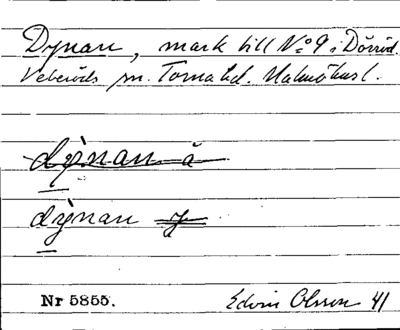 Dynan, mark till No 9 i Dörröd.
Veberöds sn. Torna hd. Malmöhus l.
dỳnan å
dỳnan
Nr 5855.
Edvin Olsson 41